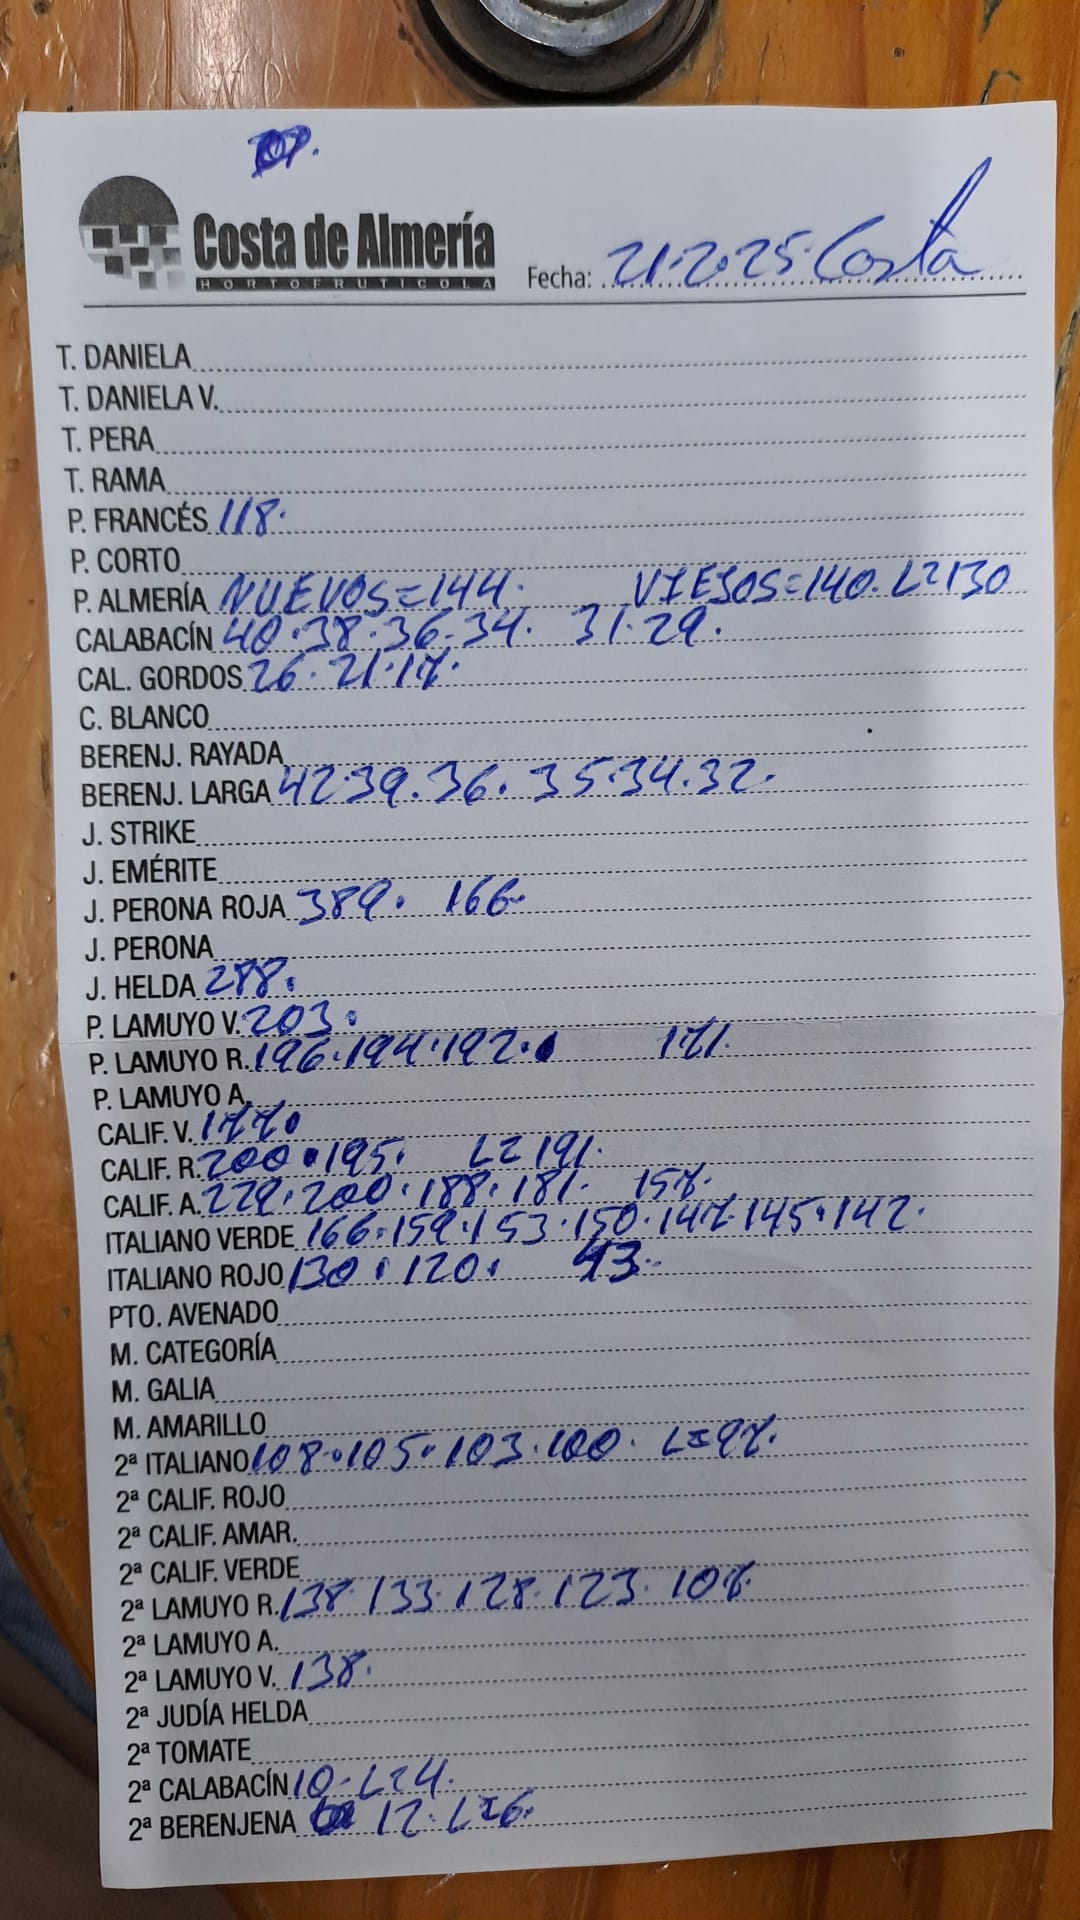 Costa de Almería
HORTOFRUTICOLA
Fecha: 21.2.25. Costa
T. DANIELA
T. DANIELA V.
T. PERA
T. RAMA
P. FRANCÉS 118.
P. CORTO
P. ALMERÍA NUEVOS=144. VIEJOS=140. L=130
CALABACÍN 40.38.36.34. 31.29.
CAL. GORDOS 26.21.17.
C. BLANCO
BERENJ. RAYADA
BERENJ. LARGA 42.39.36. 35.34.32.
J. STRIKE
J. EMÉRITE
J. PERONA ROJA 389. 166.
J. PERONA
J. HELDA 288.
P. LAMUYO V. 203.
P. LAMUYO R. 196.194.192. 171.
P. LAMUYO A.
CALIF. V. 177.
CALIF. R. 200.195. L=191.
CALIF. A. 229.200.188.181. 157.
ITALIANO VERDE 166.159.153.150.147.145.142.
ITALIANO ROJO 130.120. 43.
PTO. AVENADO
M. CATEGORÍA
M. GALIA
M. AMARILLO
2ª ITALIANO 108.105.103.100. L=97.
2ª CALIF. ROJO
2ª CALIF. AMAR.
2ª CALIF. VERDE
2ª LAMUYO R. 138.133.128.123. 107.
2ª LAMUYO A.
2ª LAMUYO V. 138.
2ª JUDÍA HELDA
2ª TOMATE
2ª CALABACÍN 10. L=4.
2ª BERENJENA 12. L=6.